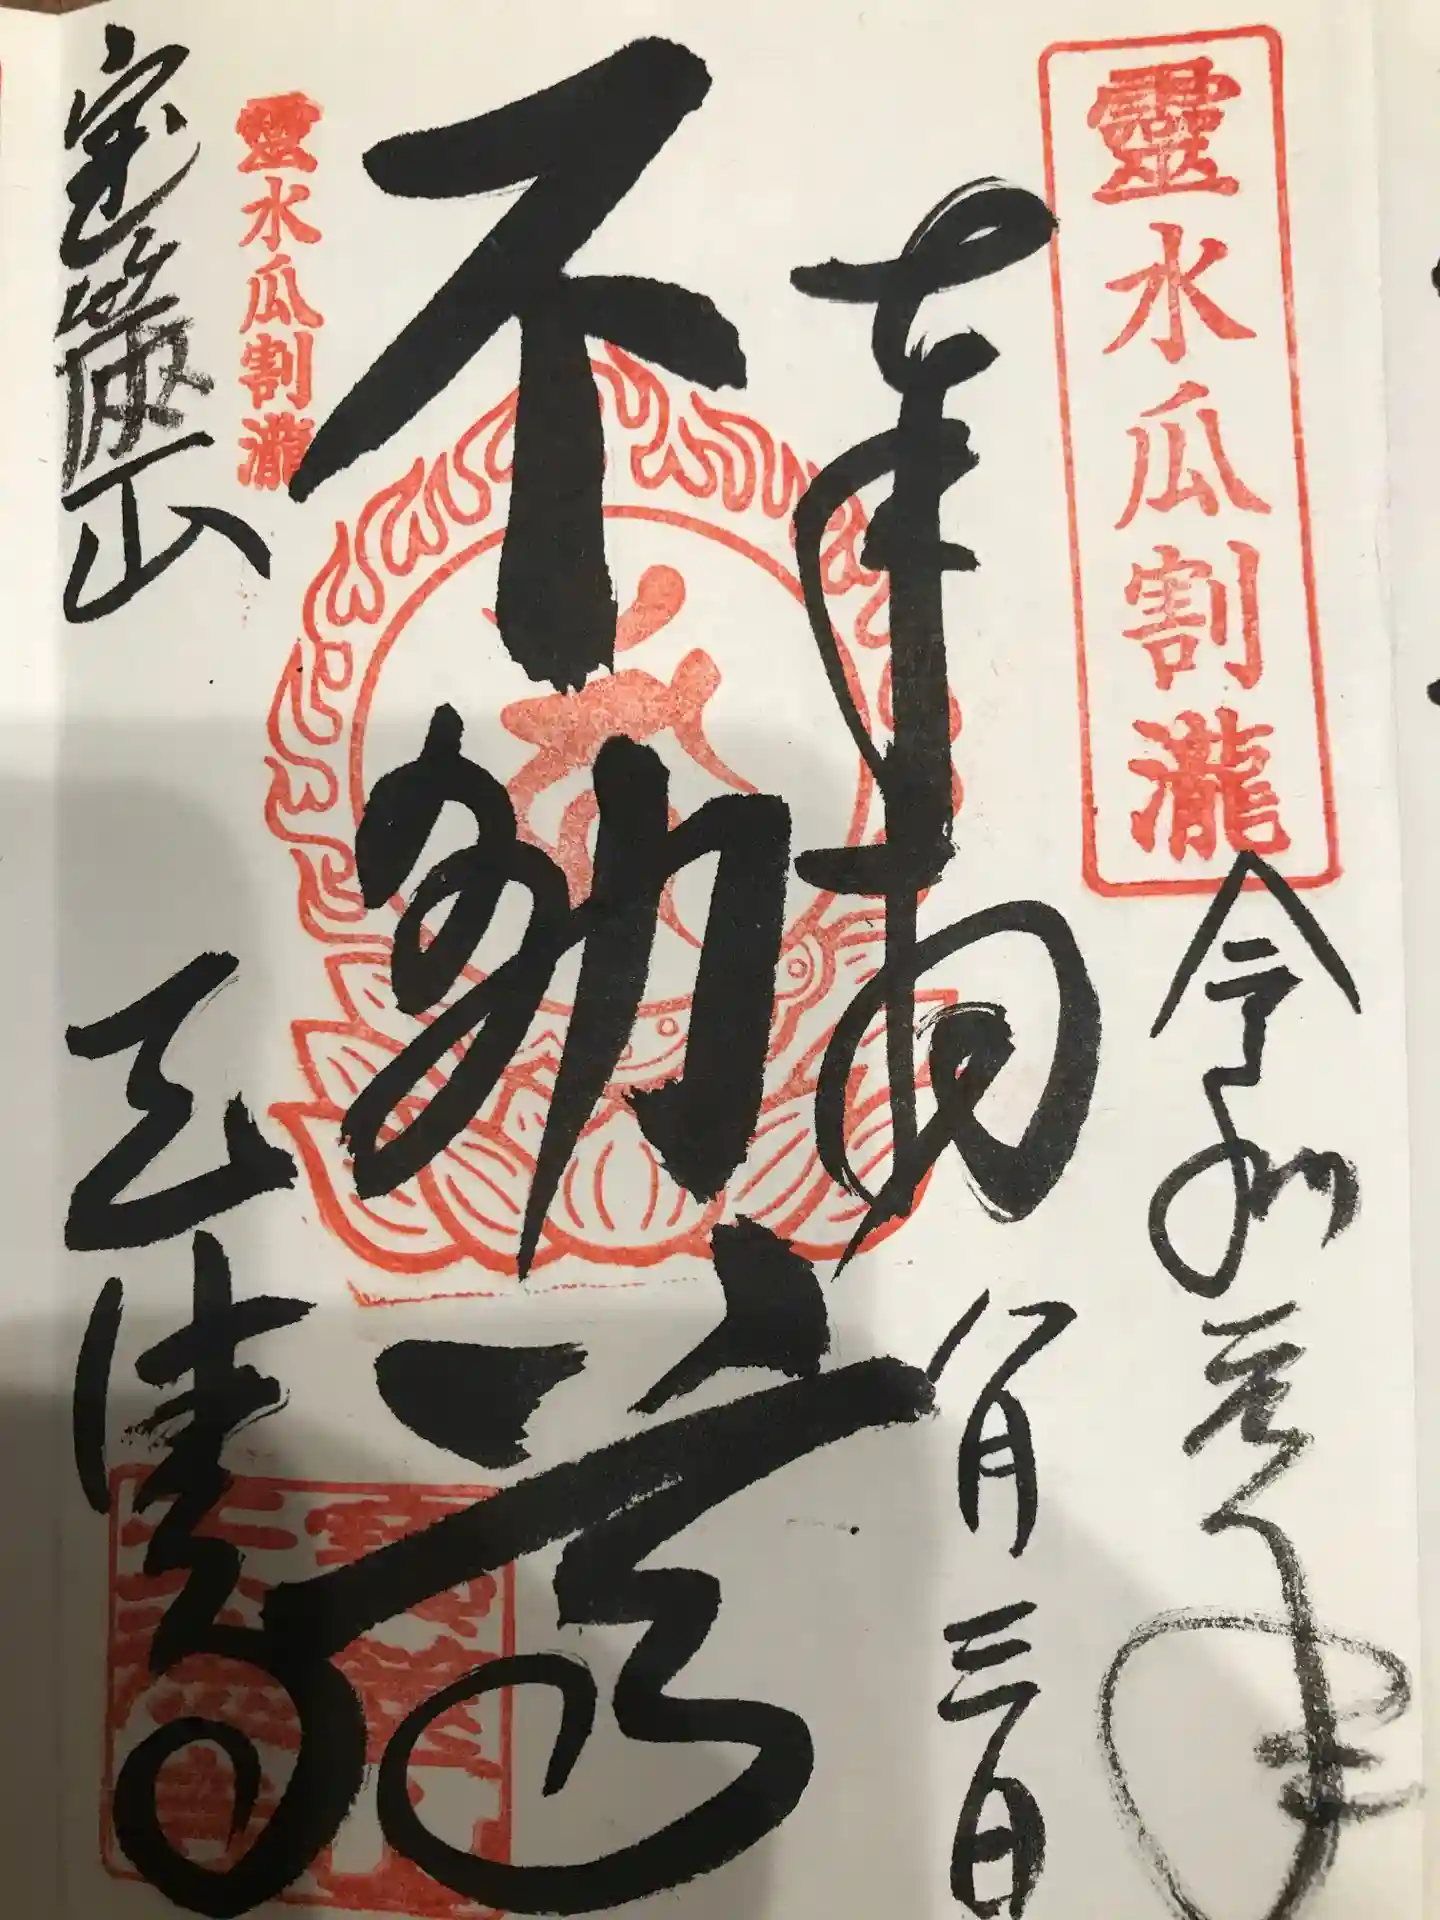 靈水瓜割瀧
令和元年
八月三日
奉拝
不動尊
靈水瓜割瀧
宝篋山
天徳寺